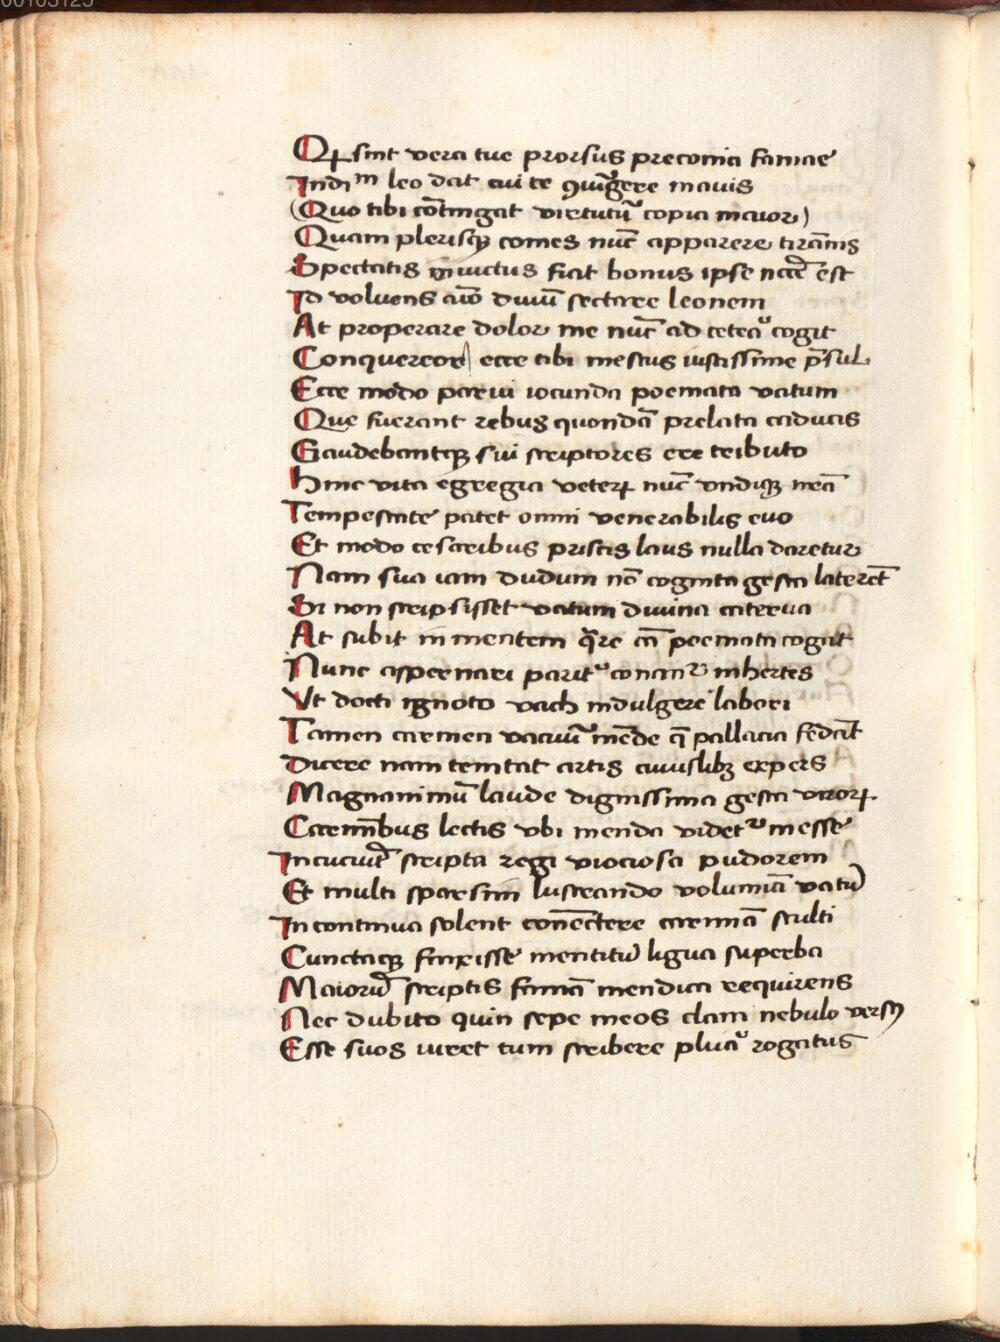 00103125
Qꝝ sint vera tue prorsus preconia famae
Indiᵐ leo dat cui te ꝯiūgere mauis
(Quo tibi cōtingat virtutū copia maior)
Quam plerisqꝫ comes nūc apparere tirānis
Spectatis inuictus fiat bonus ipse necē est
Id voluens aīo diuū sectare leonem
At properare dolor me nūc ad ceteᵃ cogit
Conqueror ecce tibi mestus iustissime p̄sul
Ecce modo parui iocunda poemata vatum
Que fuerant rebus quondā prelata caducis
Gaudebantqꝫ sui scriptores ere tributo
Hinc vita egregia veteꝝ nūc vndiqꝫ nrā
Tempestate patet omni venerabilis euo
Et modo cesaribus priscis laus nulla daretur
Nam sua iam dudum nō cognita gesta laterēt
Si non scripsisset vatum diuina caterua
At subit in mentem q̄re cā poemata cogat
Nunc aspernari paritᵉʳ conanᵗᵘʳ inhertes
Vt docti ignoto vach indulgere labori
Tamen carmen vacuū mēde q̄ pallacia fēdāt
Dicere nam temtat artis cuiuslibꝫ expers
Magnanimū laude dignissima gesta viroꝝ
Carmībus lectis vbi menda videtᵘʳ inesse
Incuciūt scripta regi viciosa pudorem
Et multi sparsim lustrando volumīa vatū
In continua solent conēctere carmīa stulti
Cunctaqꝫ finxisse mentitū ligua superba
Maiorū scriptis famā mendica requirens
Nec dubito quin sepe meos clam nebulo versꝰ
Esse suos iuret tum scribere pluᵃ rogatus